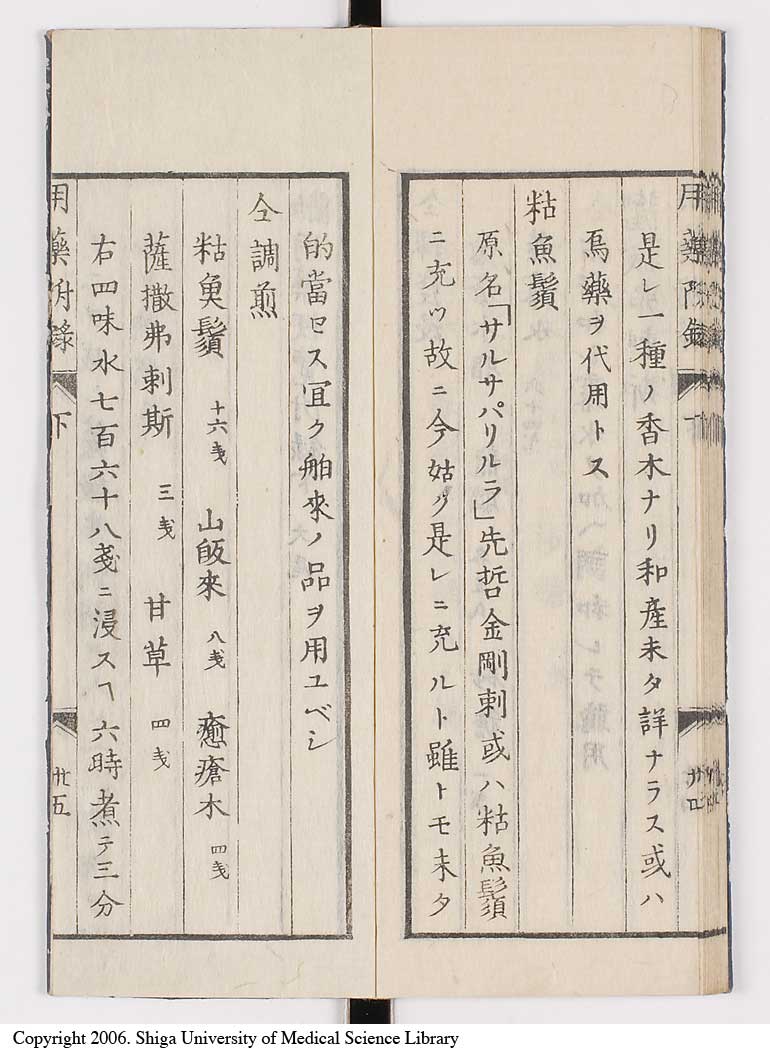 是レ一種ノ香木ナリ和産未タ詳ナラス或ハ
烏藥ヲ代用トス
粘魚鬚
原名「サルサパリルラ」先哲金剛刺或ハ粘魚鬚
ニ充ツ故ニ今姑ク是レニ充ルト雖トモ未タ
的當セス冝ク舶來ノ品ヲ用ユベシ
仝調煎
粘魚鬚 十六戔 山皈來 八戔 癒瘡木 四戔
薩撒弗剌斯 三戔 甘草 四戔
右四味水七百六十八戔ニ浸スヿ六時煮テ三分
用藥附錄 下 廿五
Copyright 2006. Shiga University of Medical Science Library